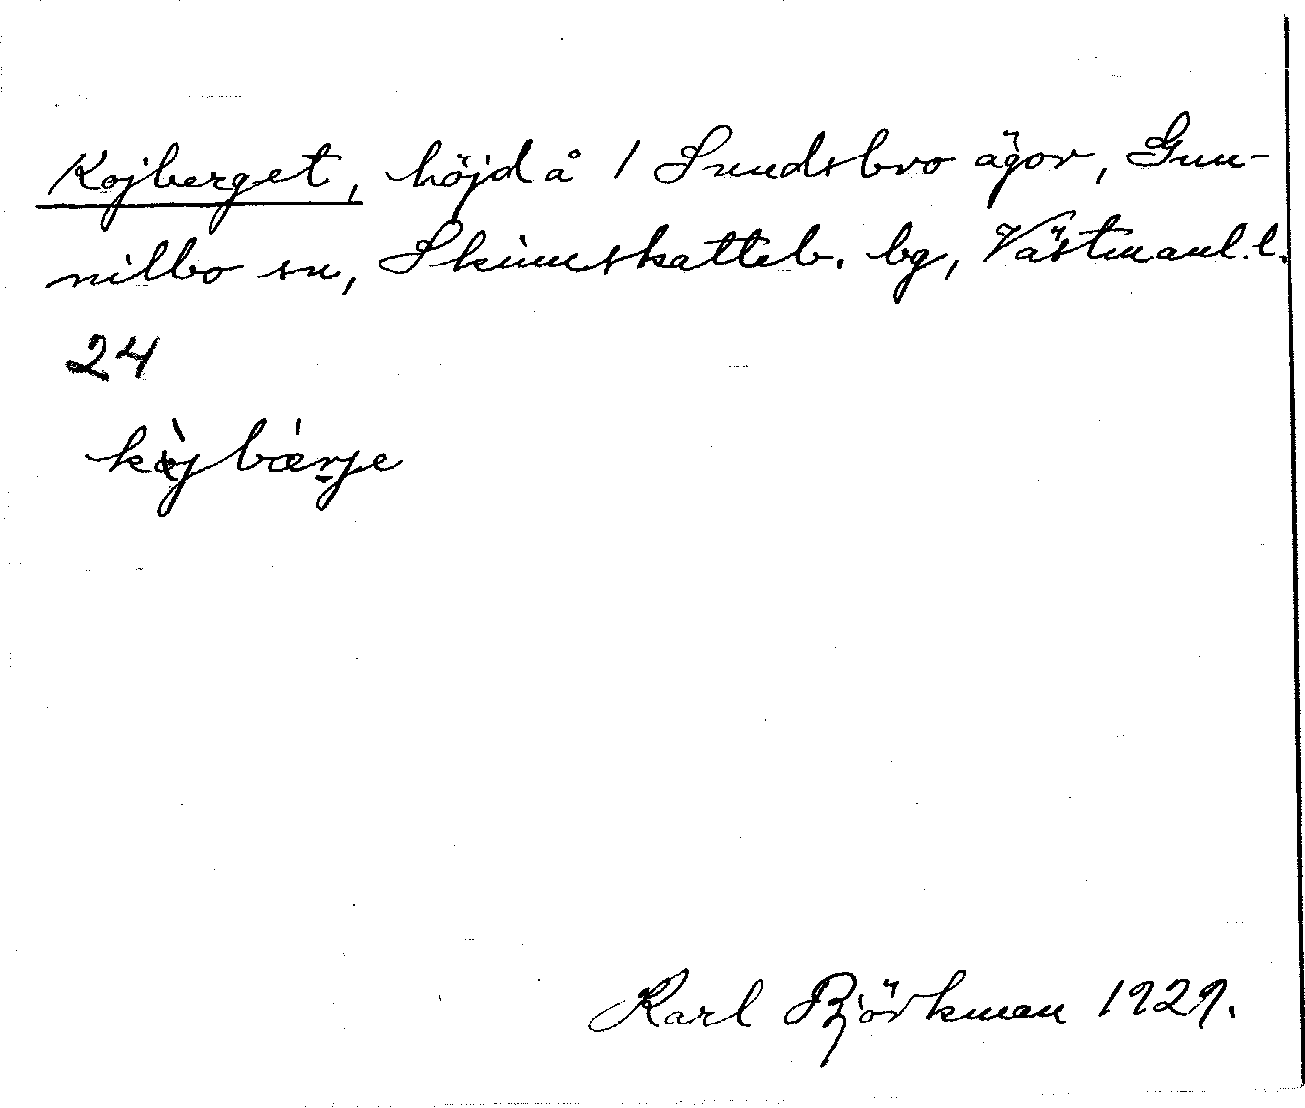 Kojberget, höjd å 1 Sundsbro ägor, Gun-
nilbo sn, Skinnskatteb. bg, Västmanl. l.
24
kòjbǽrje
Karl Björkman 1929.